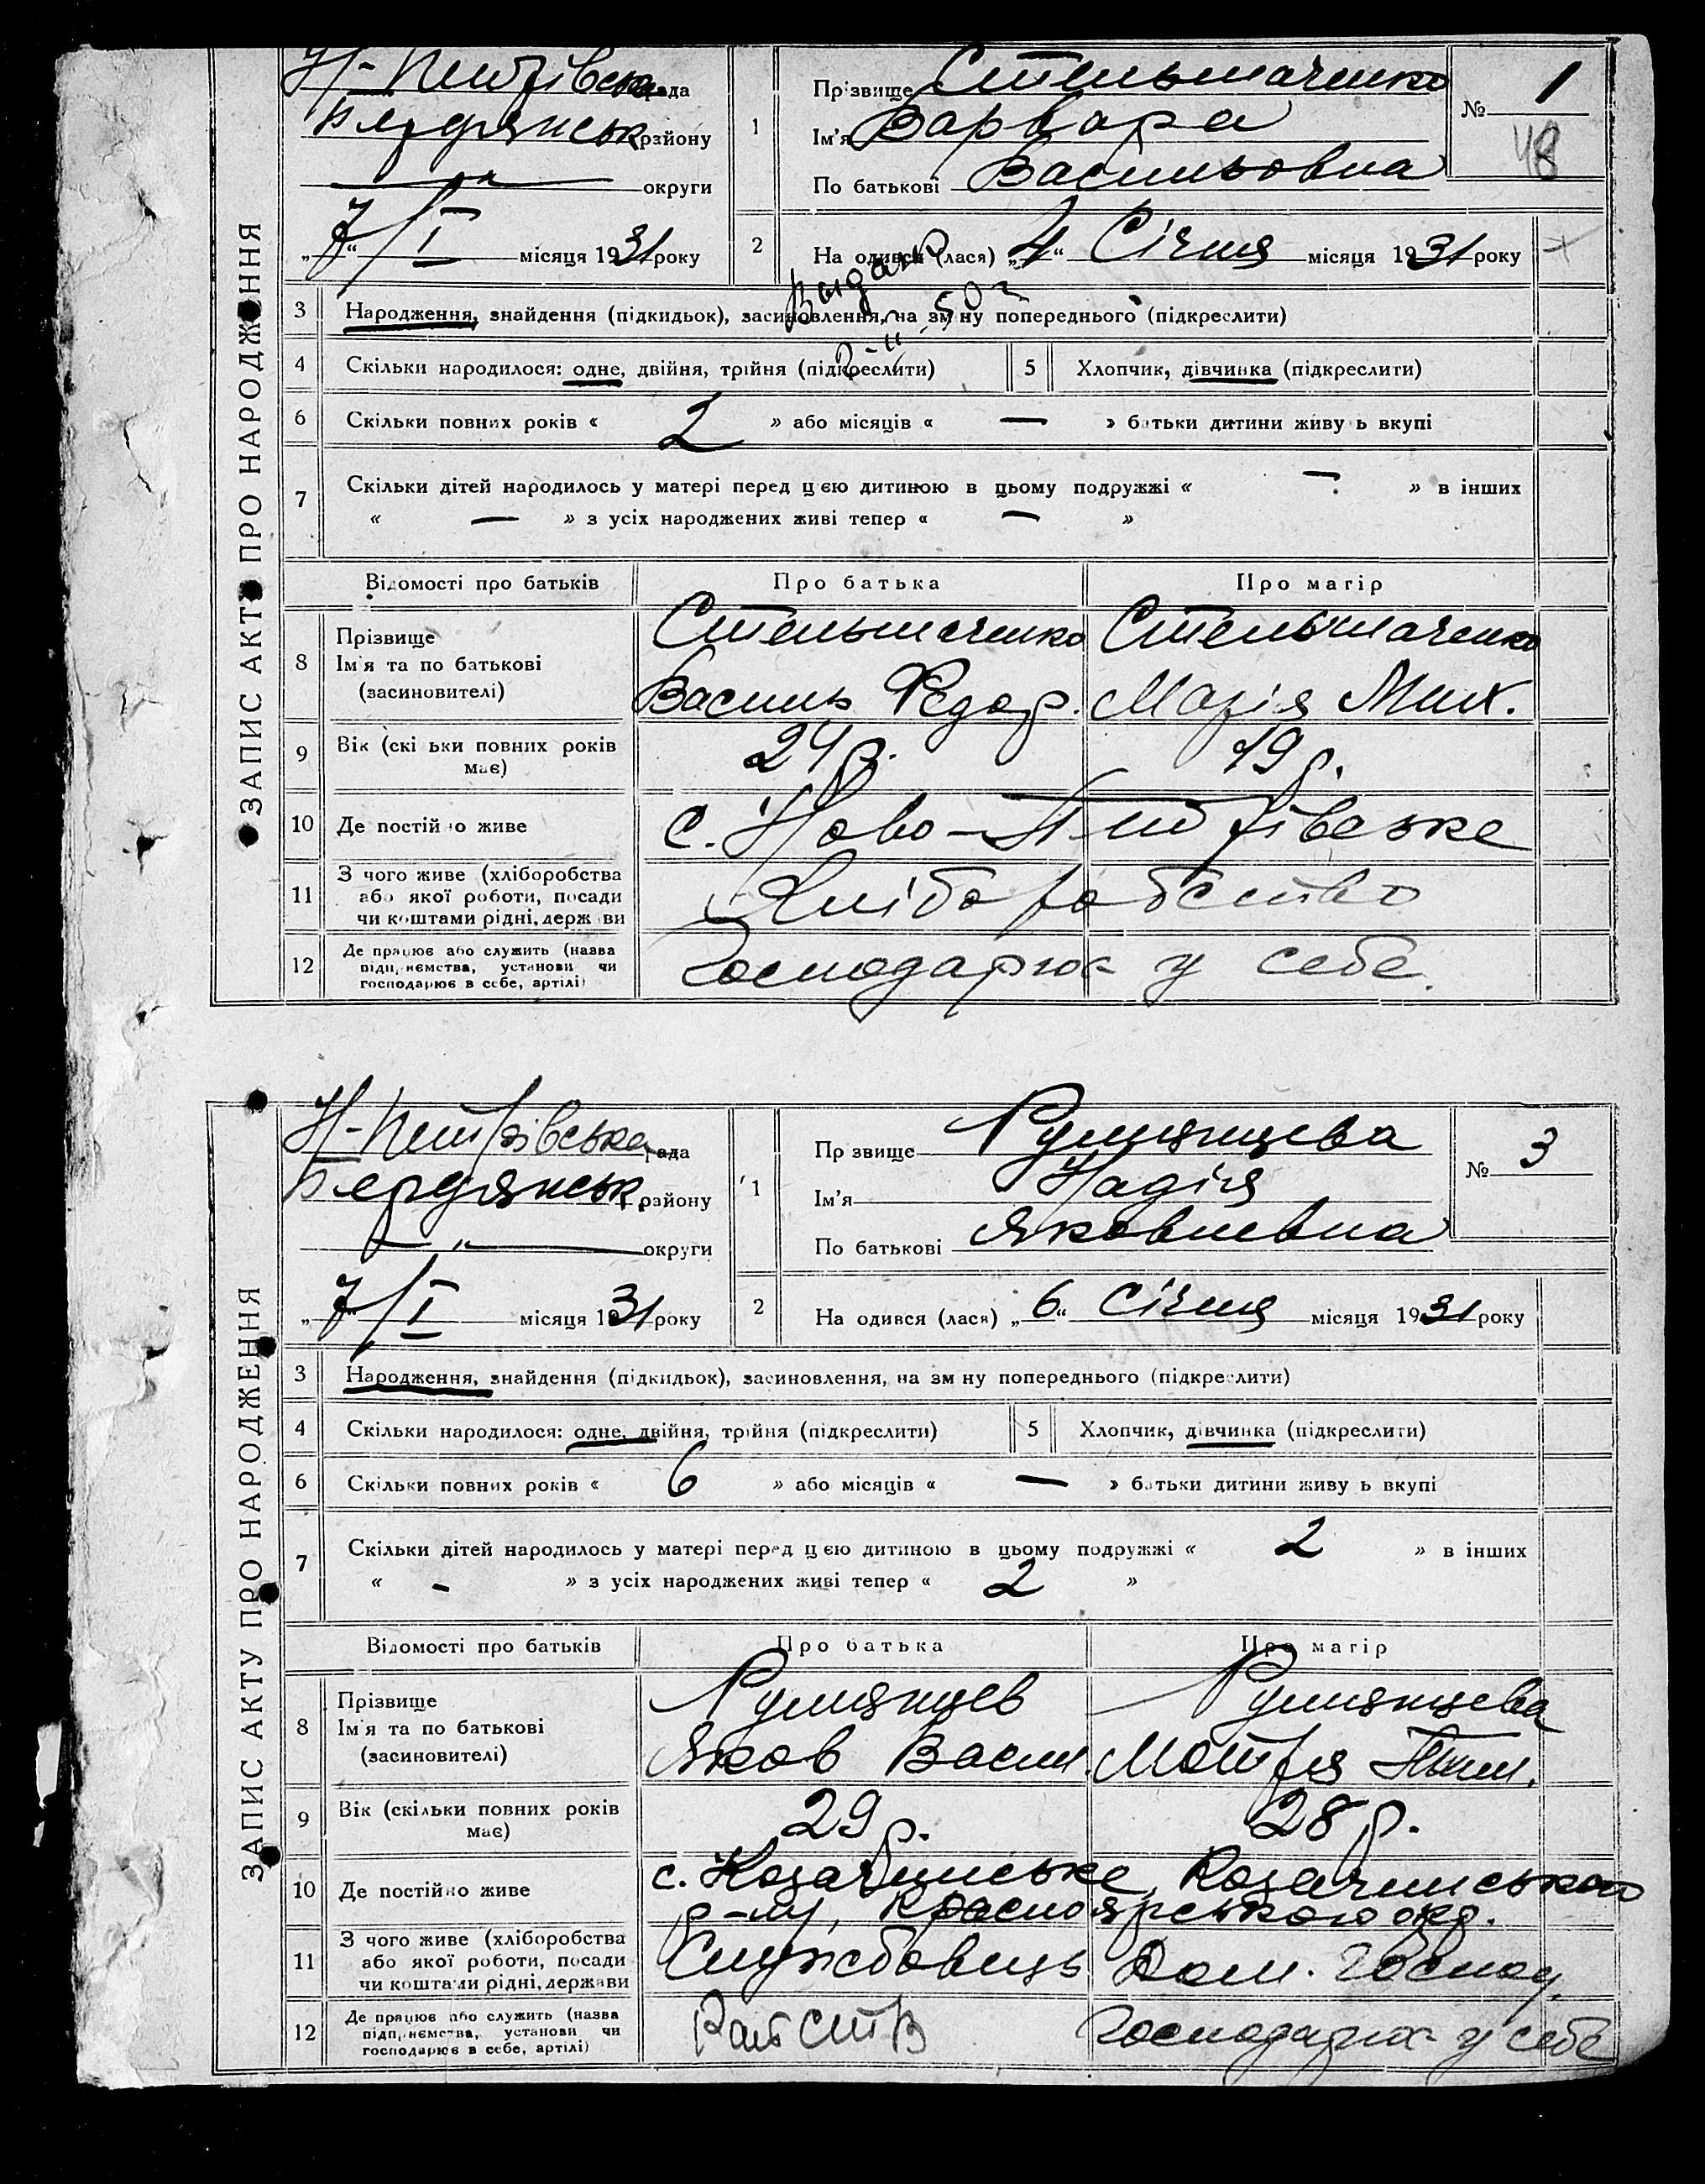 ЗАПИС АКТУ ПРО НАРОДЖЕННЯ
Н-Петрівська рада
Бердянськ району
— „ — округи
„7“/I місяця 1931 року
1 Прізвище Стельмаченко
Ім'я Варвара
По батькові Васильовна
№ 1
48
2 На одився (лася) „4“ Січня місяця 1931 року
Выдано
50 г
3 Народження, знайдення (підкидьок), засиновлення, на зм ну попереднього (підкреслити)
4 Скільки народилося: одне, двійня, трійня (підкреслити) 5 Хлопчик, дівчинка (підкреслити)
6 Скільки повних років « 2 » або місяців « — » батьки дитини живу ь вкупі
7 Скільки дітей народилось у матері перед цією дитиною в цьому подружжі « — » в інших
« — » з усіх народжених живі тепер « — »
Відомості про батьків Про батька Про матір
8 Прізвище Ім'я та по батькові (засиновителі)
Стельмаченко Стельмаченко
Василь Федор. Марія Мих.
9 Вік (скі ьки повних років має) 24 р. 19 р.
10 Де постійно живе с. Ново-Петрівське
11 З чого живе (хліборобства або якої роботи, посади чи коштами рідні, держ ви Хліборобство
12 Де працює або служить (назва підприємства, установи чи господарює в себе, артілі) Господарює у себе.
ЗАПИС АКТУ ПРО НАРОДЖЕННЯ
Н-Петрівська рада
Бердянськ. району
— „ — округи
„7“/I місяця 1931 року
1 Пр звище Румянцева
Ім'я Надія
По батькові Яковлевна
№ 3
2 На одився (лася) „6“ Січня місяця 1931 року
3 Народження, знайдення (підкидьок), засиновлення, на зм ну попереднього (підкреслити)
4 Скільки народилося: одне, двійня, трійня (підкреслити) 5 Хлопчик, дівчинка (підкреслити)
6 Скільки повних років « 6 » або місяців « — » батьки дитини живу ь вкупі
7 Скільки дітей народилось у матері перед цією дитиною в цьому подружжі « 2 » в інших
« - » з усіх народжених живі тепер « 2 »
Відомості про батьків Про батька Про матір
8 Прізвище Ім'я та по батькові (засиновителі)
Румянцев Румянцева
Яков Васил. Мотря
9 Вік (скільки повних років має) 29 р. 28 р.
10 Де постійно живе с. Козачинське, Козачинського
р-ну, Красноярського окр.
11 З чого живе (хліборобства або якої роботи, посади чи коштами рідні, держави Службовець Дом. Господ.
12 Де працює або служить (назва підприємства, установи чи господарює в себе, артілі) Господарює у себе